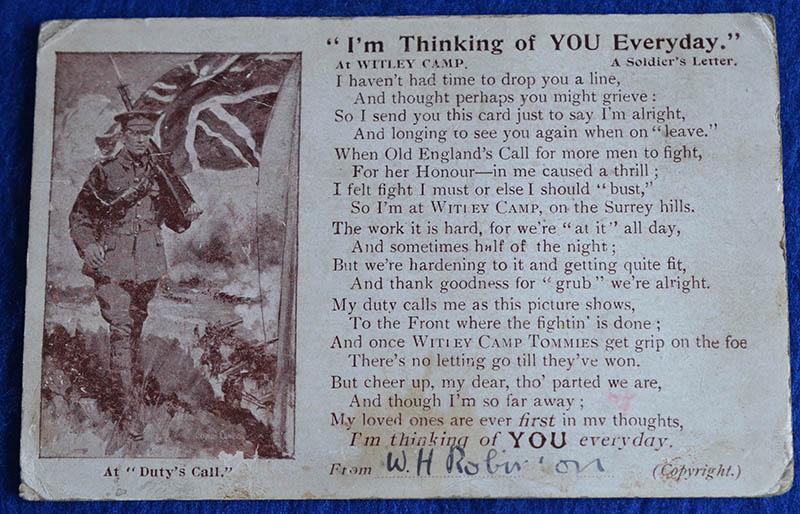 "I'm Thinking of YOU Everyday."
At WITLEY CAMP. A Soldier's Letter.
I haven't had time to drop you a line,
And thought perhaps you might grieve :
So I send you this card just to say I'm alright,
And longing to see you again when on "leave."
When Old England's Call for more men to fight,
For her Honour—in me caused a thrill ;
I felt fight I must or else I should "bust,"
So I'm at WITLEY CAMP, on the Surrey hills.
The work it is hard, for we're "at it" all day,
And sometimes half of the night ;
But we're hardening to it and getting quite fit,
And thank goodness for "grub" we're alright.
My duty calls me as this picture shows,
To the Front where the fightin' is done ;
And once WITLEY CAMP TOMMIES get grip on the foe
There's no letting go till they've won.
But cheer up, my dear, tho' parted we are,
And though I'm so far away ;
My loved ones are ever first in my thoughts,
I'm thinking of YOU everyday.
At "Duty's Call."
From W.H Robinson (Copyright.)